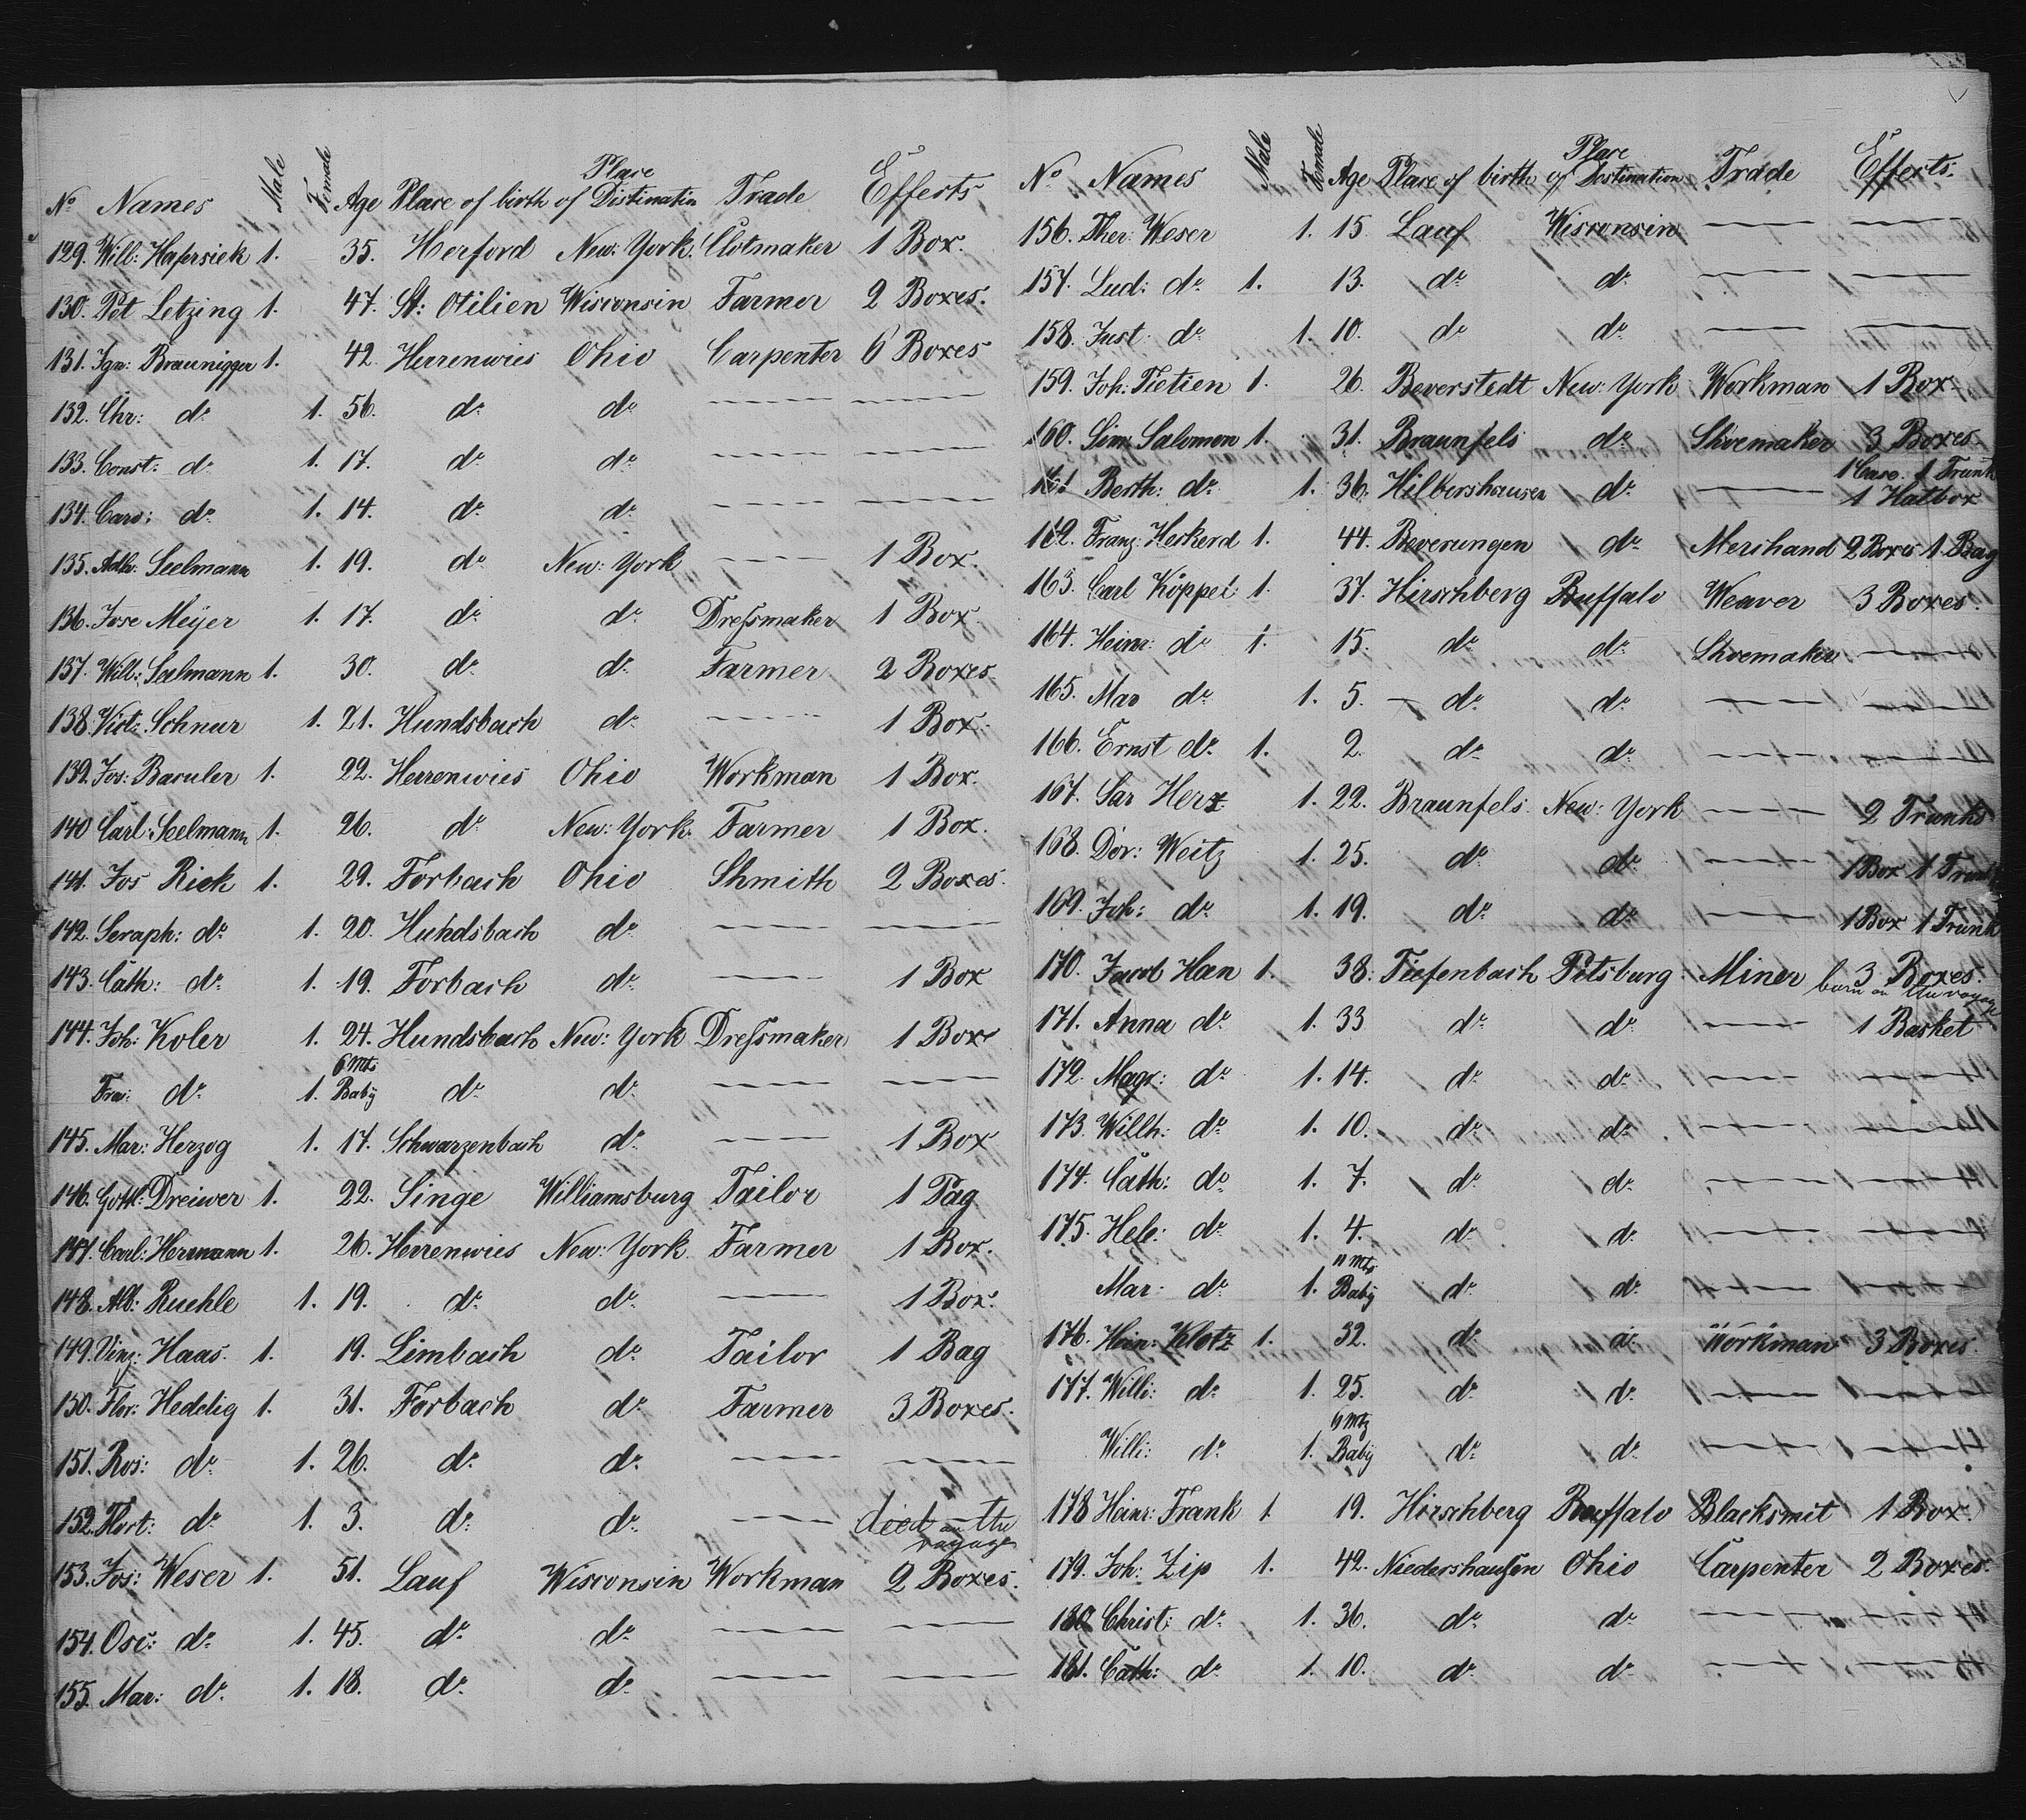 No Names Male Female Age Place of birth Place of Distinatin Trade Effects
129. Will: Hafersiek 1. 35. Herford New: York. Clotmaker 1 Box.
130. Pet Letzing 1. 47. St: Otilien Wisconsin Farmer 2 Boxes.
131. Ign: Braunigger 1. 42. Herrenwies Ohio Carpenter 6 Boxes
132. Chr: do 1. 56. do do
133. Const: do 1. 17. do do
134. Caro: do 1. 14. do do
135. Adh: Seelmann 1. 19. do New: York 1 Box.
136. Jose Meÿer 1. 17. do do Dressmaker 1 Box
137. Will: Seelmann 1. 30. do do Farmer 2 Boxes
138. Vict: Schnur 1. 21. Hundsbach do 1 Box.
139. Jos: Baruler 1. 22. Herrenwies Ohio Workman 1 Box.
140 Carl: Seelmann 1. 26. do New: York. Farmer 1 Box.
141. Jos Rick 1. 29. Forbach Ohio Shmith 2 Boxes.
142. Seraph: do 1. 20. Huhdsbach do
143. Cath: do 1. 19. Forbach do 1 Box
144. Joh: Koler 1. 24. Hundsbach New: York Dressmaker 1 Box
Fra: do 1. 6 Mts Baby do do
145. Mar: Herzog 1. 17. Schwarzenbach do 1 Box
146. Gottl: Dreiwer 1. 22. Singe Williamsburg Tailor 1 Pag
147. Carl: Herrmann 1. 26. Herrenwies New: York. Farmer 1 Box.
148. Alb: Ruehle 1. 19. do do 1 Box.
149. Vinz: Haas. 1. 19. Limbach do Tailor 1 Bag
150. Flor: Heddig 1. 31. Forbach do Farmer 3 Boxes.
151. Ros: do 1. 26. do do
152. Hort: do 1. 3. do do died on the voyage
153. Jos: Weser 1. 51. Lauf Wisconsin Workman 2 Boxes.
154. Osc: do 1. 45. do do
155. Mar: do 1. 18. do do
No Names Male Female Age Place of birth Place of Destination Trade Effects.
156. Ther: Weser 1. 15. Lauf Wisconsin
157. Lud: do 1. 13. do do
158. Just: do 1. 10. do do
159. Joh: Tietien 1. 26. Beverstedt New: York Workman 1 Box
160. Sim: Salomon 1. 31. Braunfels do Shoemaker 3 Boxes.
161 Berth: do 1. 36. Hilbershausen do 1 Case. 1 Trunk 1 Hatbox
162. Franz: Heskerd 1. 44. Beverungen do Merchand 2 Boxes 1 Bag
163. Carl Köppel 1. 37. Hirschberg Buffalo Weaver 3 Boxes.
164. Heinr: do 1. 15. do do Shoemaker
165. Mar do 1. 5. do do
166. Ernst do 1. 2. do do
167. Sar Herz 1. 22. Braunfels. New: York 2 Trunks
168. Dor: Weitz 1. 25. do do 1 Box 1 Trunk
169. Joh: do 1. 19. do do 1 Box 1 Trunk
170. Jacob Han 1. 38. Tiefenbach Pitsburg Miner 3 Boxes.
171. Anna do 1. 33 do do born on the voyage 1 Basket
172. Magr: do 1. 14. do do
173. Willh: do 1. 10. do do
174. Cath: do 1. 7. do do
175. Hele: do 1. 4. do do
Mar: do 1. 11 Mts Baby do do
176. Hein: Klotz 1. 32. do do Workman 3 Boxes.
177. Willi: do 1. 25. do do
Willi: do 1. 6 Mts Baby do do
178 Heinr: Frank 1 19. Hirschberg Buffalo Blacksmit 1 Box.
179. Joh: Zip 1. 42. Niedershausen Ohio Carpenter 2 Boxes.
180 Christ: do 1. 36. do do
181. Cath: do 1. 10. do do